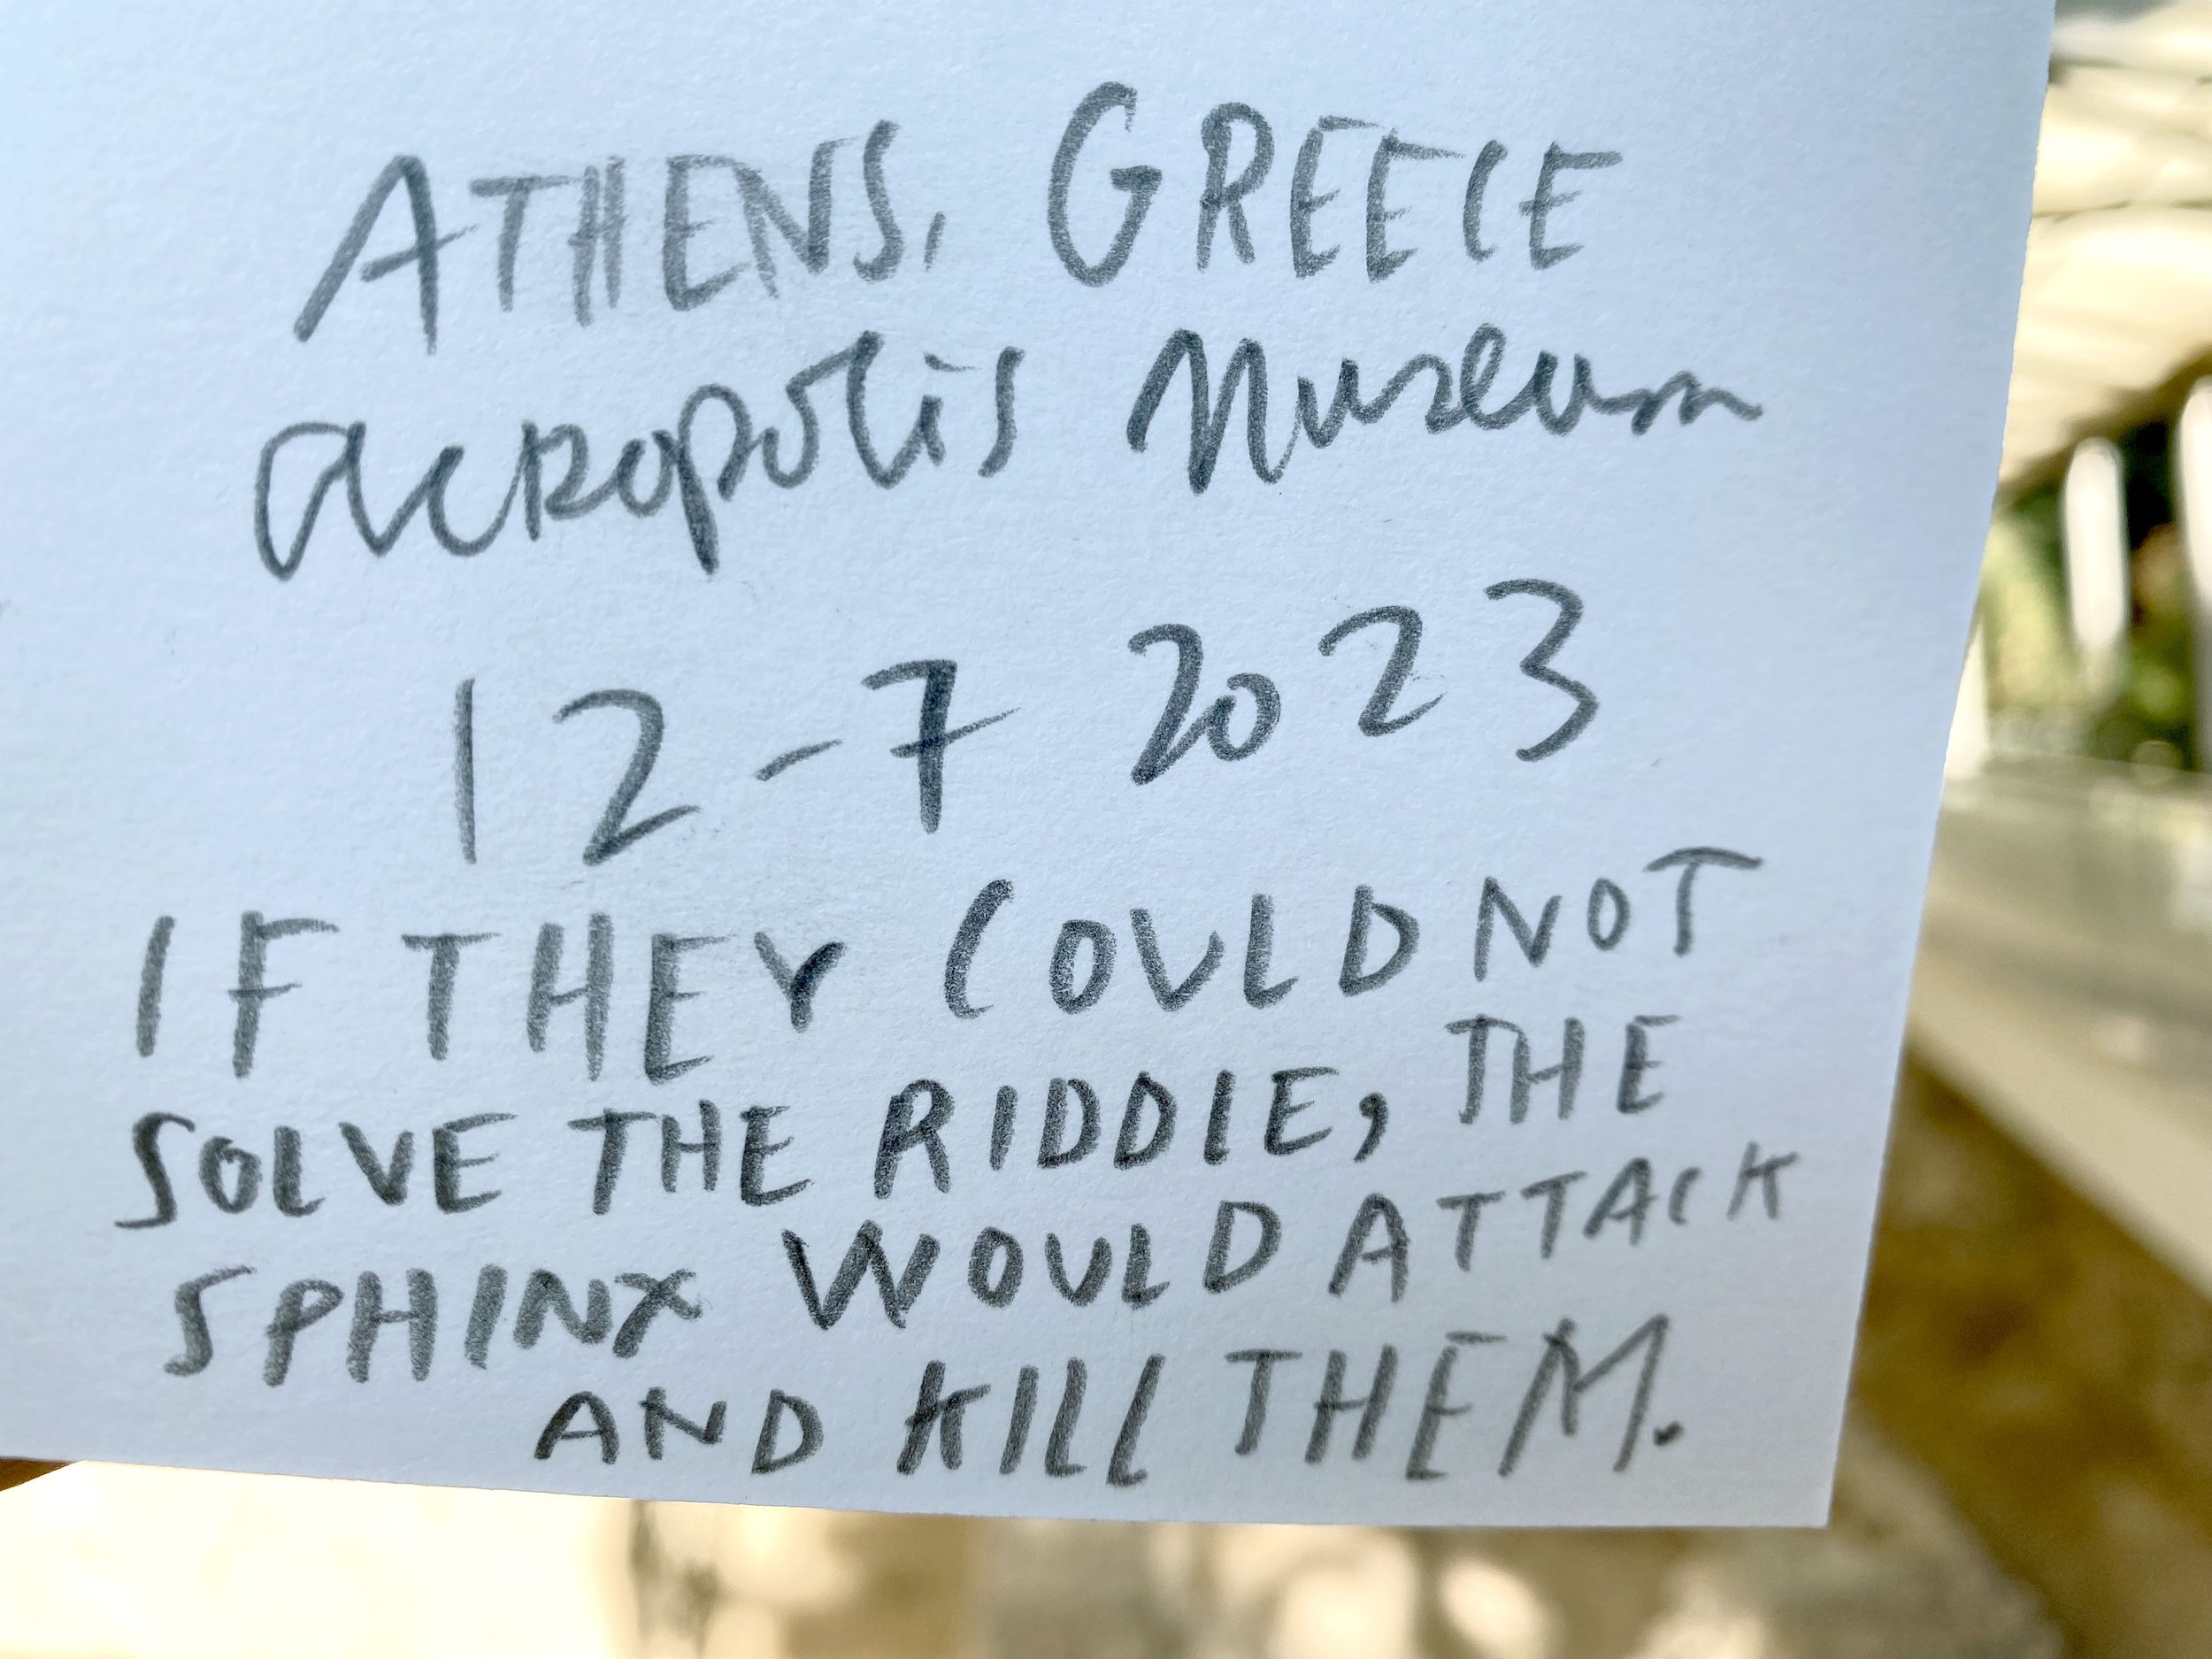 ATHENS, GREECE
acropolis Museum
12-7 2023
IF THEY COULD NOT
SOLVE THE RIDDLE, THE
SPHINX WOULD ATTACK
AND KILL THEM.